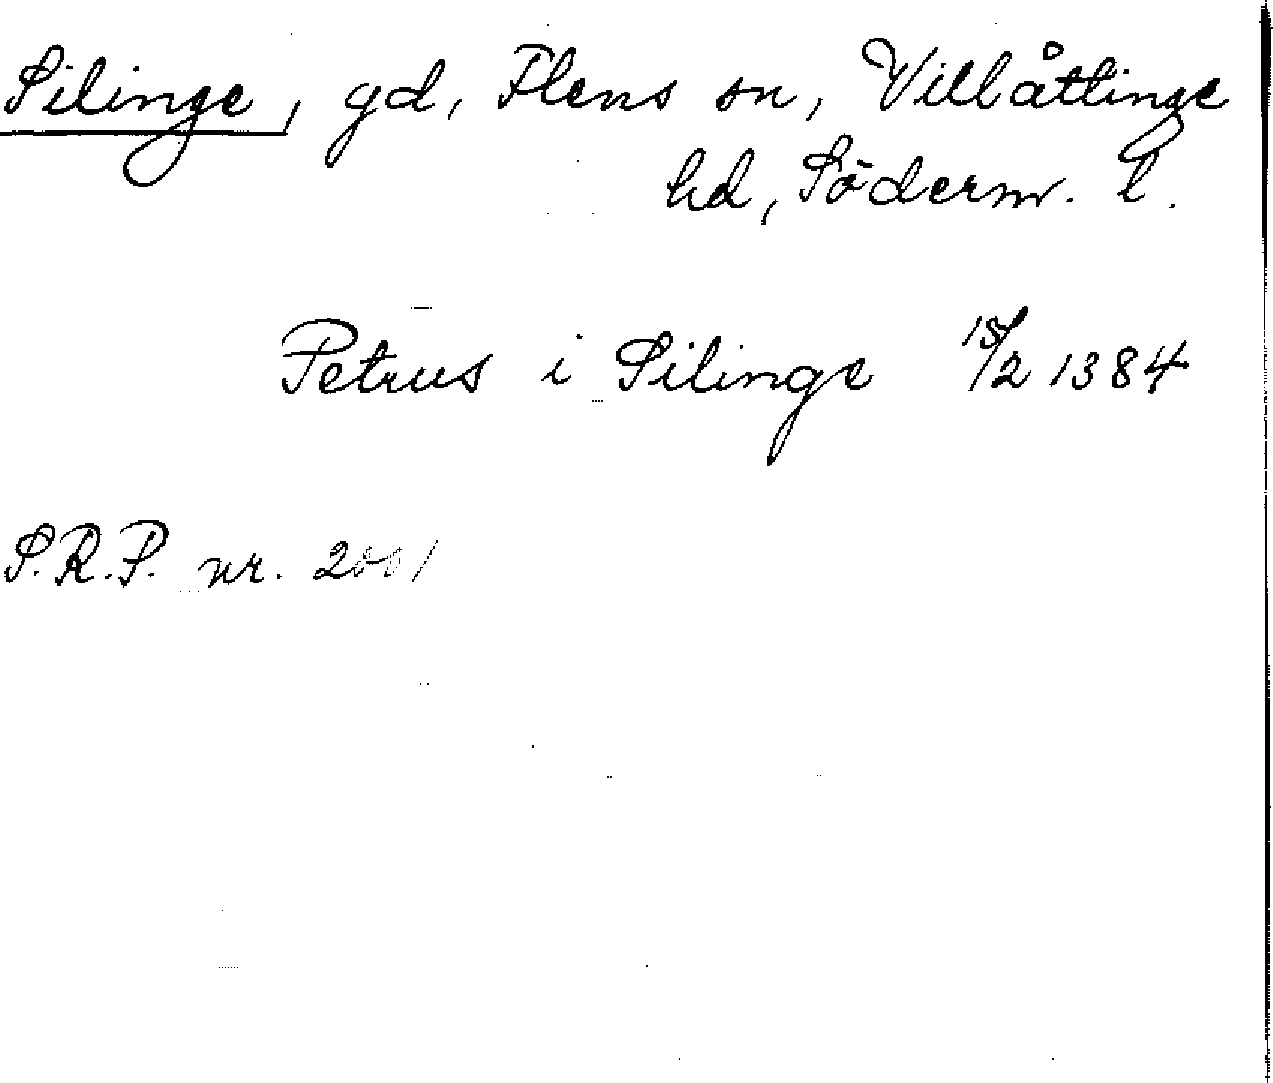 Silinge, gd, Flens sn, Villåttinge
hd, Söderm. l.
Petrus i Silinge 15/2 1384
S.R.P. nr. 2001